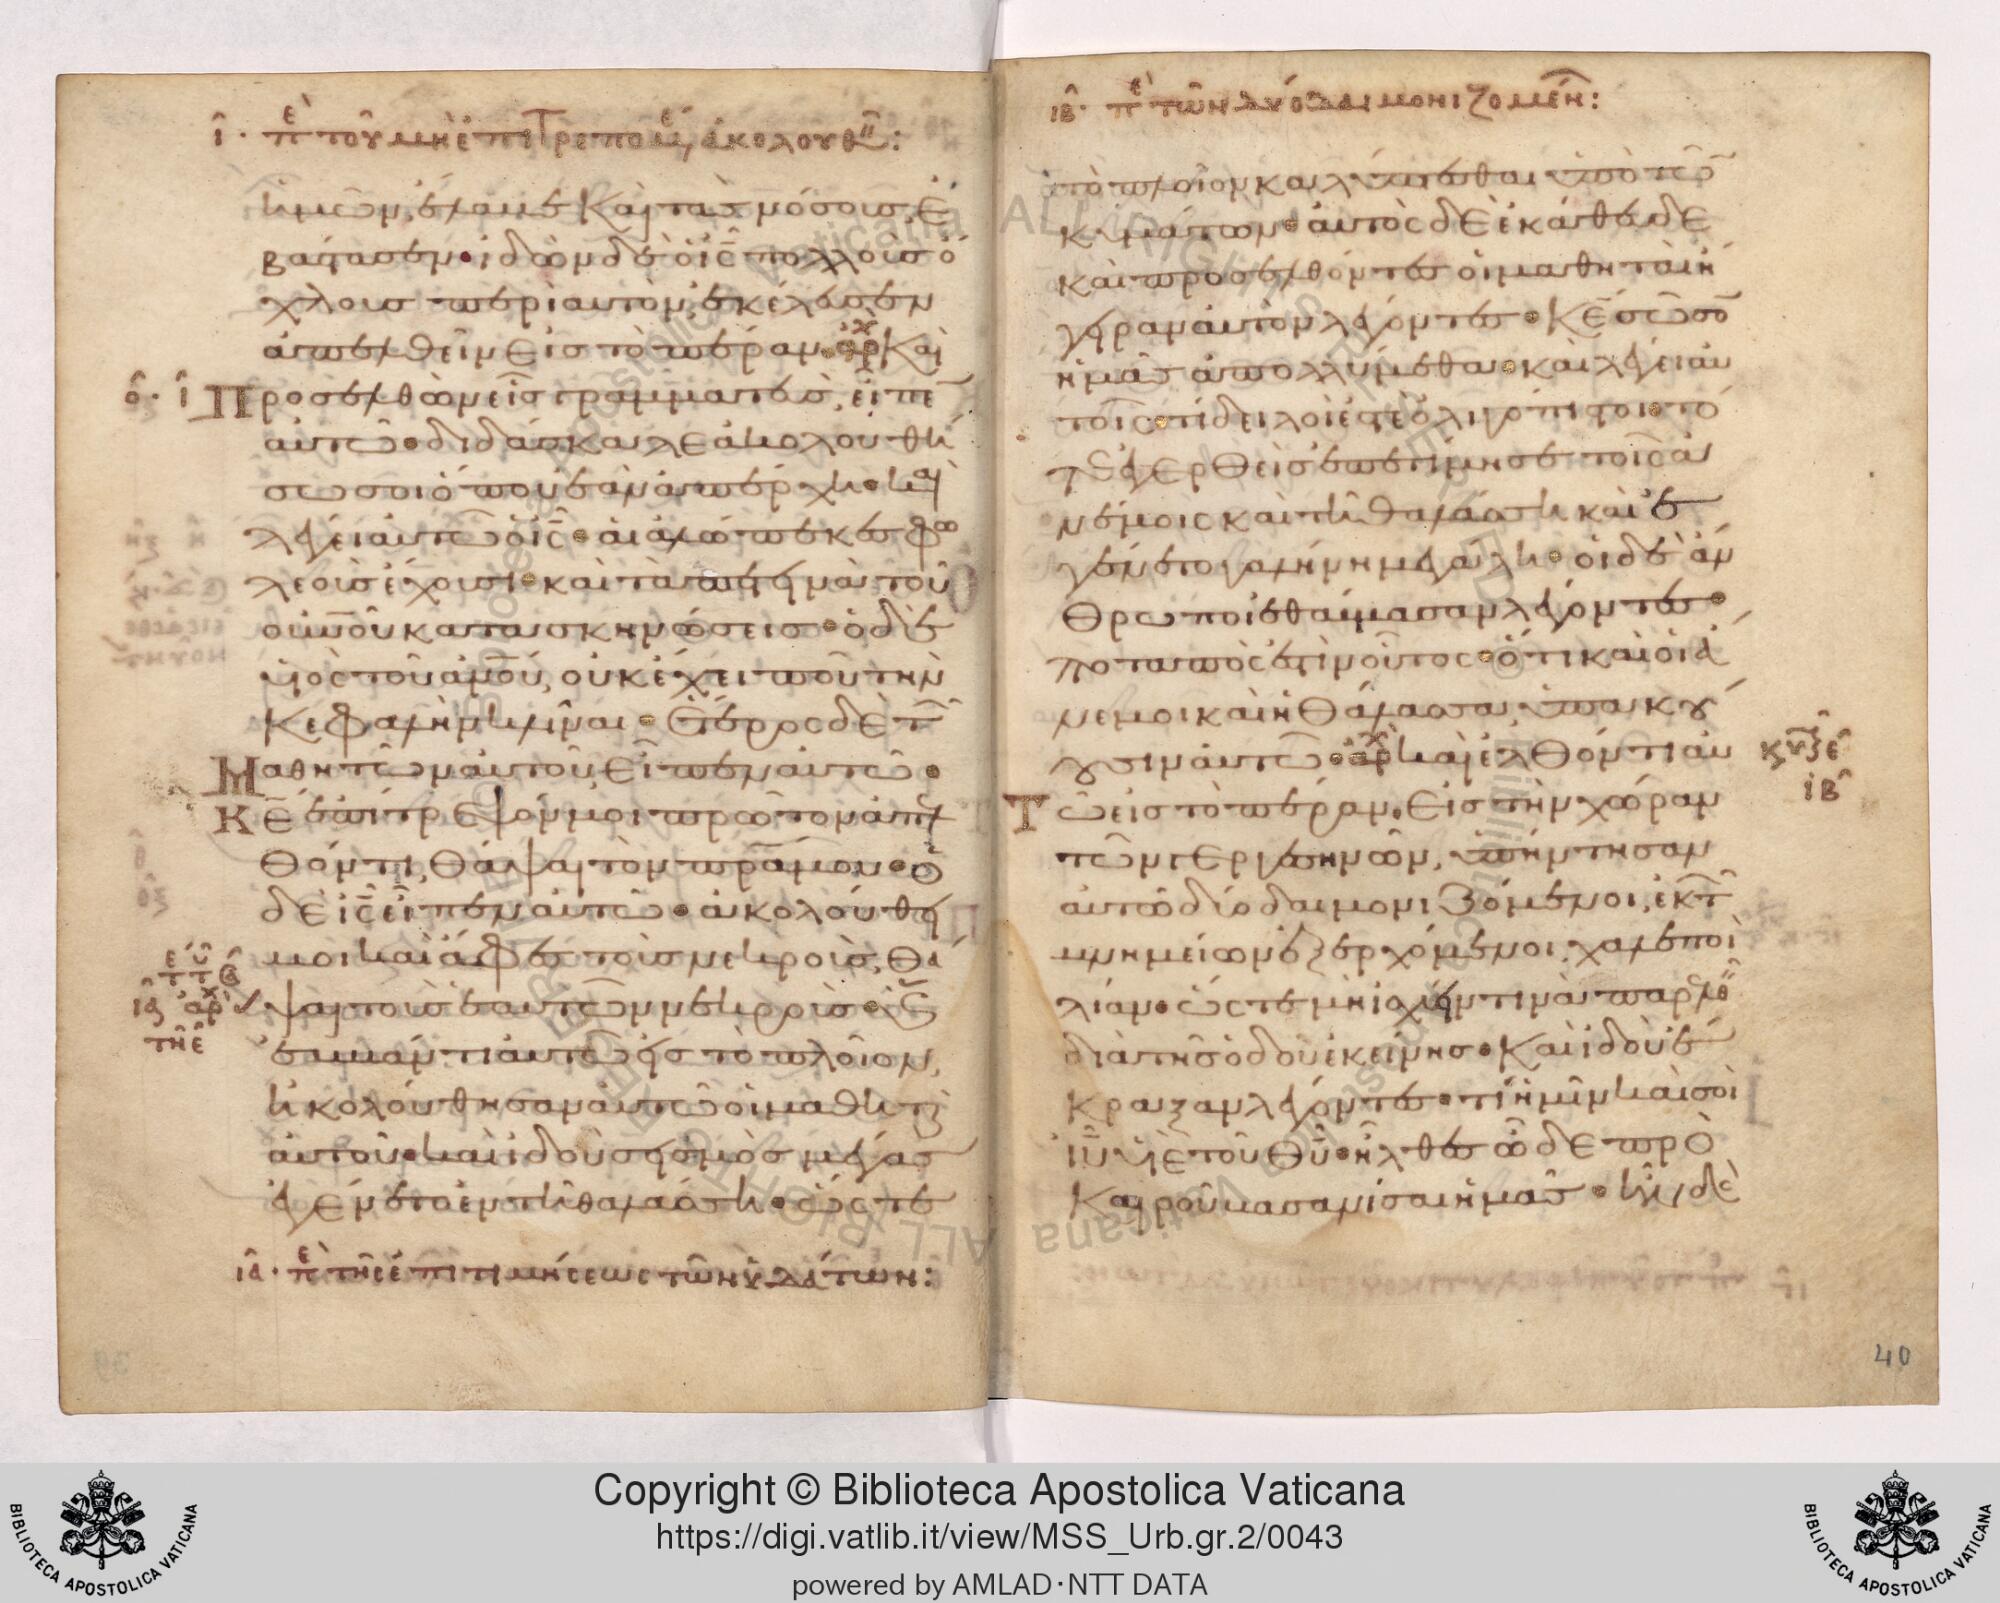 ι̂· πὲ τοῦ μὴ ἐπιτρεπομέ ἀκολουθ:
ἡμῶν, ἔλαβε καὶ τὰς νόσους ἐ
βάστασεν· ἰδὼν δὲ ὁ ις̅ πολλοὺς ὄ
χλους περὶ αὐτὸν, ἐκέλευσεν
ἀπελθεῖν εἰς τὸ πέραν· αρχ Καὶ
ο̂· ι̂ Προσελθὼν εἷς γραμματεὺς, εἶπε
αὐτῷ· διδάσκαλε ἀκολουθή
σω σοι ὅπου ἐὰν ἀπέρχῃ· καὶ
λέγει αὐτῷ ὁ ις̅· αἱ ἀλώπεκες φω
λεοὺς ἔχουσι· καὶ τὰ πετεινὰ τοῦ
οὐνοῦ κατασκηνώσεις· ὁ δὲ
υἱὸς τοῦ ἀνου, οὐκ ἔχει ποῦ τὴν
κεφαλὴν κλῖναι· ἕτερος δὲ τ
Μαθητῶν αὐτοῦ, εἶπεν αὐτῷ·
Κε̅ ἐπίτρεψόν μοι πρῶτον ἀπελ
θόντι, θάψαι τὸν πρα̅ μου· ὁ
δὲ ις̅ εἶπεν αὐτῷ· ἀκολούθει
μοι καὶ ἄφες τοὺς νεκροὺς, θά
ψαι τοὺς ἑαυτῶν νεκρούς· Ε
ιγ αρχ τῆ ε̂
ἐμβάντι αὐτῷ εἰς τὸ πλοῖον,
ἠκολούθησαν αὐτῷ οἱ μαθηταὶ
αὐτοῦ· καὶ ἰδοὺ σεισμὸς μέγας
ἐγένετο ἐν τῇ θαλάσσῃ· ὥστε
ια̂· πὲ τῆς ἐπιτιμήσεως τῶν ὑδάτων:
ιβ̂· πὲ τῶν δύο δαιμονιζομέν:
τὸ πλοῖον καλύπτεσθαι ὑπὸ τῶ
κυμάτων· αὐτὸς δὲ ἐκάθευδε
καὶ προσελθόντες οἱ μαθηταὶ ἤ
γειραν αὐτὸν λέγοντες· Κε̅ σῶσο
ἡμᾶς ἀπολλύμεθα· καὶ λέγει αὐ
τοῖς· τί δειλοί ἐστε ὀλιγόπιστοι· το
τε ἐγερθεὶς ἐπετίμησε τοῖς ἀ
νέμοις καὶ τῇ θαλάσσῃ καὶ ἐ
γένετο γαλήνη μεγάλη· οἱ δὲ ἄν
θρωποι ἐθαύμασαν λέγοντες·
ποταπός ἐστιν οὗτος· ὅτι καὶ οἱ ἄ
νεμοι καὶ ἡ θάλασσα, ὑπακού
ουσιν αὐτῷ· αρχ καὶ ἐλθόντι αὐ
κυ ξ ε̂
ιβ̂
Τῷ εἰς τὸ πέραν, εἰς τὴν χώραν
τῶν γεργεσηνῶν, ὑπήντησαν
αὐτῷ δύο δαιμονιζόμενοι, ἐκ τ
μνημείων ἐξερχόμενοι, χαλεποὶ
λίαν· ὥστε μὴ ἰσχύειν τινὰ παρελθ
διὰ τῆς ὁδοῦ ἐκείνης· Καὶ ἰδοὺ ἔ
κραξαν λέγοντες· τί ἡμῖν καὶ σοὶ
ιυ̅ υἱὲ τοῦ θυ̅· ἦλθες ὧδε πρὸ
καιροῦ βασανίσαι ἡμᾶς· ἦν δὲ
40
Copyright © Biblioteca Apostolica Vaticana
https://digi.vatlib.it/view/MSS_Urb.gr.2/0043
powered by AMLAD·NTT DATA
BIBLIOTECA APOSTOLICA VATICANA
BIBLIOTECA APOSTOLICA VATICANA